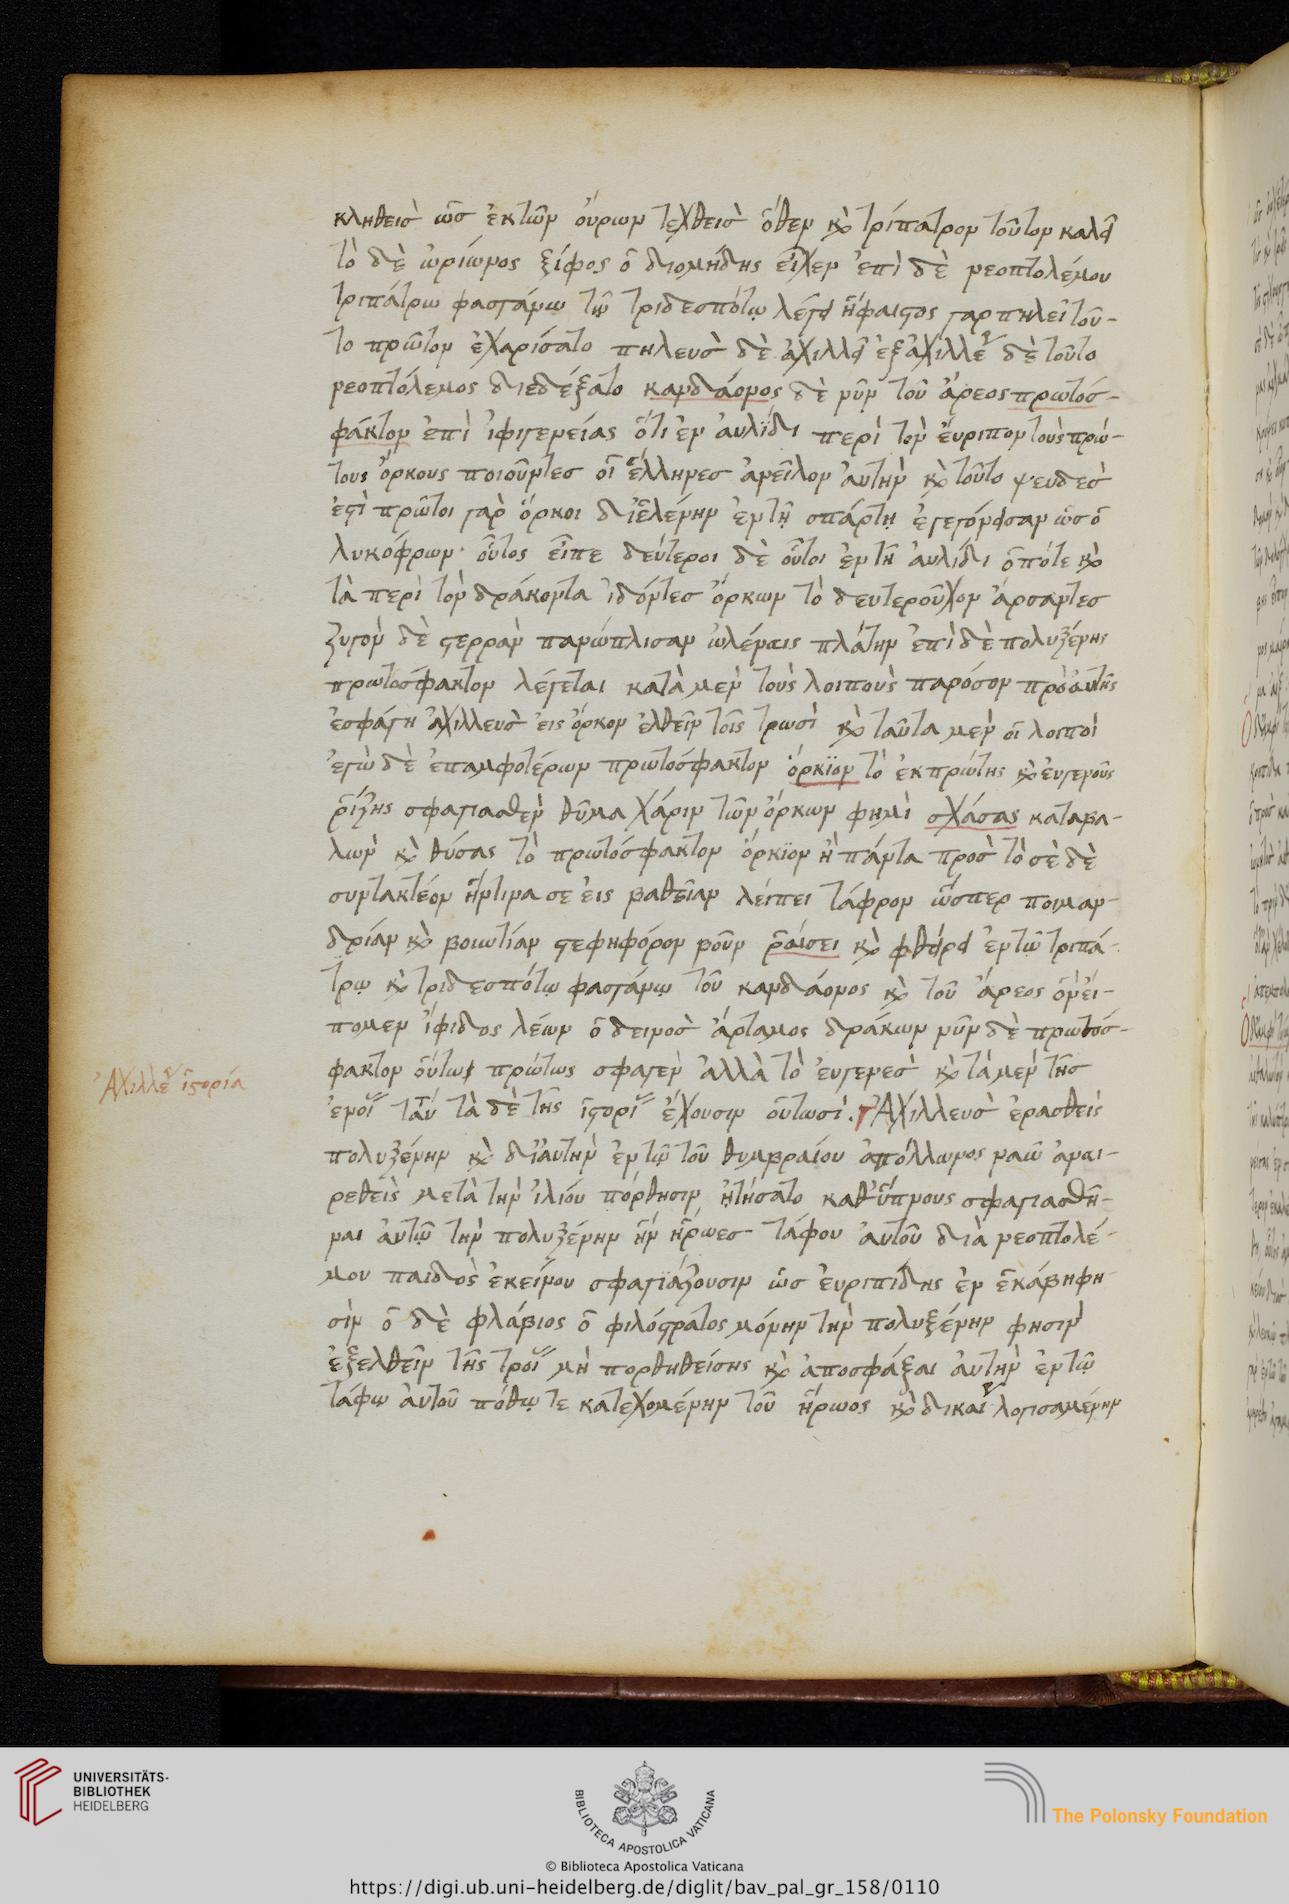 κληθεὶς ὡς ἐκ τῶν οὔρων τεχθεὶς ὅθεν καὶ τρίπατρον τοῦτον καλεῖ
τὸ δὲ ὠρίωνος ξίφος ὁ διομήδης εἶχεν ἐπὶ δὲ νεοπτολέμου
τριπάτρω φασγάνω τῷ τριδεσπότῳ λέγει ἥφαιστος γὰρ πηλεῖ τοῦ-
το πρῶτον ἐχαρίσατο πηλεὺς δὲ ἀχιλλεῖ ἐξ ἀχιλλέως δὲ τοῦτο
νεοπτόλεμος διεδέξατο κανδάονος δὲ νῦν τοῦ ἄρεος πρωτόσ-
φακτον ἐπὶ ἰφιγενείας ὅτι ἐν αὐλίδι περὶ τὸν εὔριπον τοὺς πρώ-
τους ὅρκους ποιοῦντες οἱ ἕλληνες ἀνεῖλον αὐτὴν καὶ τοῦτο ψευδὲς
ἐστὶ πρῶτοι γὰρ ὅρκοι δι' ἑλένην ἐν τῇ σπάρτῃ ἐγεγόνεισαν ὡς ὁ
λυκόφρων οὗτος εἶπε δεύτεροι δὲ οὗτοι ἐν τῇ αὐλίδι ὁπότε καὶ
τὰ περὶ τὸν δράκοντα ἰδόντες ὅρκων τὸ δευτεροῦχον ἄρσαντες
ζυγὸν δὲ στερρὰν πανώπλισαν ὠλέναις πλάτην ἐπὶ δὲ πολυξένης
πρωτόσφακτον λέγεται κατὰ μὲν τοὺς λοιποὺς παρόσον πρὸ αὐτῆς
ἐσφάγη ἀχιλλεὺς εἰς ὅρκον ἐλθεῖν τοῖς τρωσὶ καὶ ταῦτα μὲν οἱ λοιποί
ἐγὼ δὲ ἐπ' ἀμφοτέρων πρωτόσφακτον ὅρκϊον τὸ ἐκ πρώτης καὶ εὐγενοῦς
ῥίζης σφαγιασθὲν θῦμα χάριν τῶν ὅρκων φημὶ σχάσας καταβα-
λὼν καὶ θύσας τὸ πρωτόσφακτον ὅρκϊον ἢ πάντα πρὸς τὸ σὲ δὲ
συντακτέον ἥντινα σε εἰς βαθεῖαν λείπει τάφρον ὥσπερ ποιμαν-
δρίαν καὶ βοιωτίαν στεφηφόρον βοῦν ῥαίσει καὶ φθείρει ἐν τῷ τριπά-
τρῳ καὶ τριδεσπότῳ φασγάνῳ τοῦ κανδάονος καὶ τοῦ ἄρεος ὃν εἴ-
πομεν ἴφιδος λέων ὁ δεινὸς ἄρταμος δράκων νῦν δὲ πρωτόσ-
φακτον οὕτως πρώτως σφαγὲν ἀλλὰ τὸ εὐγενὲς καὶ τὰ μὲν τῆς
ἐννοίας ταῦτα τὰ δὲ τῆς ἱστορίας ἔχουσιν οὑτωσί. Ἀχιλλεὺς ἐρασθεὶς
πολυξένην καὶ δι' αὐτὴν ἐν τῷ τοῦ θυμβραίου ἀπόλλωνος ναῶ ἀναι-
ρεθεὶς μετὰ τὴν ἰλίου πόρθησιν ᾐτήσατο καθ' ὕπνους σφαγιασθῆ-
ναι αὐτῷ τὴν πολυξένην ἣν ἥρωες τάφου αὐτοῦ διὰ νεοπτολέ-
μου παιδὸς ἐκείνου σφαγϊάζουσιν ὡς εὐριπίδης ἐν ἑκάβη φη-
σὶν ὁ δὲ φλάβιος ὁ φιλόστρατος μόνην τὴν πολυξένην φησὶν
ἐξελθεῖν τῆς τροίας μὴ πορθηθείσης καὶ ἀποσφάξαι αὐτὴν ἐν τῷ
τάφω αὐτοῦ πόθῳ τε κατεχομένην τοῦ ἥρωος καὶ δίκαιον λογισαμένην
Ἀχιλλέως ἱστορία
UNIVERSITÄTS-
BIBLIOTHEK
HEIDELBERG
BIBLIOTECA APOSTOLICA VATICANA
The Polonsky Foundation
© Biblioteca Apostolica Vaticana
https://digi.ub.uni-heidelberg.de/diglit/bav_pal_gr_158/0110